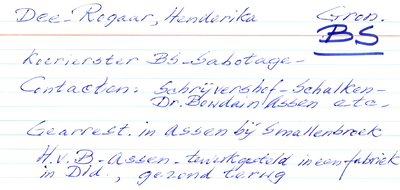 Dee-Rogaar, Henderika Gron.
BS
Koerierster BS-Sabotage-
Contacten: Schrijvershof-Schalken-
Dr. Bowdain Assen etc.
Gearrest. in Assen bij Smallenbroek
H.v.B-Assen-tewerkgesteld in een fabriek
in Dld., gezond terug